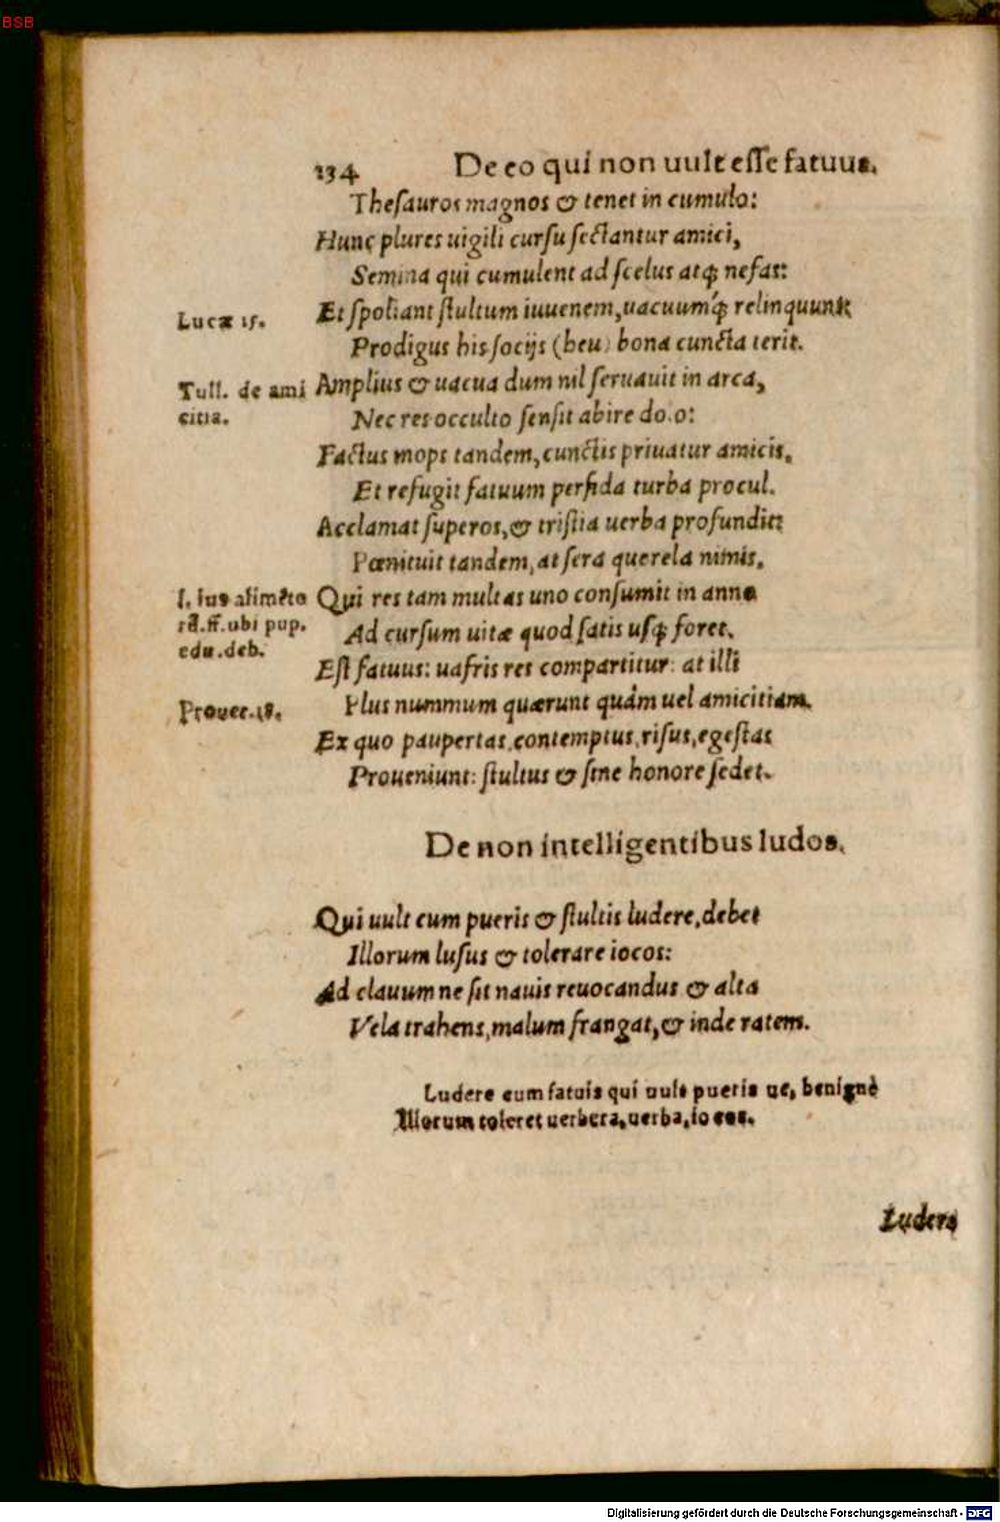 BSB
134 De eo qui non uult esse fatuus.
Thesauros magnos & tenet in cumulo:
Hunc plures uigili cursu sectantur amici,
Semina qui cumulent ad scelus atq; nefas:
Et spoliant stultum iuuenem, uacuumq́; relinquunt:
Lucæ 15.
Prodigus his socijs (heu) bona cuncta terit.
Amplius & uacua dum nil seruauit in arca,
Tull. de ami
citia.
Nec res occulto sensit abire do.o:
Factus mops tandem, cunctis priuatur amicis.
Et refugit fatuum perfida turba procul.
Acclamat superos, & tristia uerba profundit:
Pœnituit tandem, at sera querela nimis.
Qui res tam multas uno consumit in anno
l. ius alimēto
rū.ff.ubi pup.
edu.deb.
Ad cursum uitæ quod satis usq; foret.
Est fatuus: uafris res compartitur: at illi
Plus nummum quærunt quàm uel amicitiam.
Prouer.18.
Ex quo paupertas, contemptus, risus, egestas
Proueniunt: stultus & sine honore sedet.
De non intelligentibus ludos.
Qui uult cum pueris & stultis ludere, debet
Illorum lusus & tolerare iocos:
Ad clauum ne sit nauis reuocandus & alta
Vela trahens, malum frangat, & inde ratem.
Ludere cum fatuis qui uult pueris ue, benignè
Illorum toleret uerbera, uerba, iocos.
Ludere
Digitalisierung gefördert durch die Deutsche Forschungsgemeinschaft - DFG